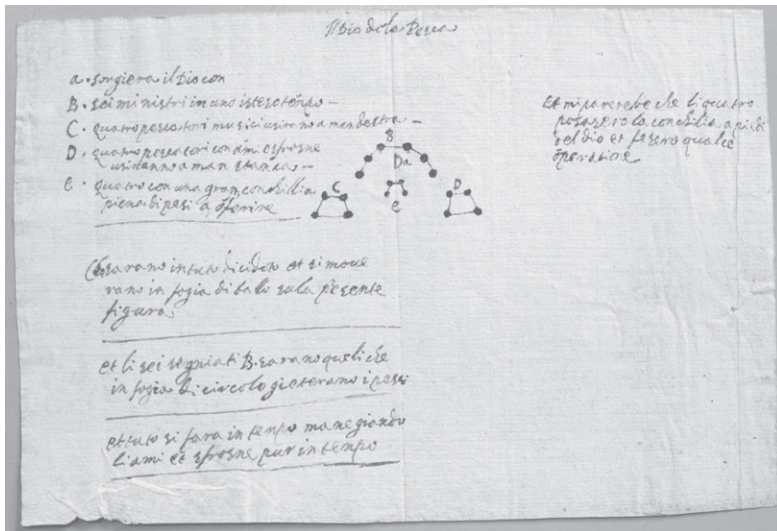 Il Dio de la Pesca
a. sorgiera il Dio con
B. sei ministri in uno istesotenpo –
C. quatro pescatori musici usirano a man destra –
D. quatro pescatori con ami e sfrosne
usiranno a man stanca –
e. quatro con una gram conchillia
piena di pesi a oferire
B
Da
C
e
D
Et mi parerebe che li quatro
posasero la conchilia a piedi
del dio et fesero qualce
operatione
sarano in tuto dicidoto et si move
rano in fogia di balo su la presente
figura
et li sei segniati B. sarano queli che
in fogia di circolo gieterano i pessi
et tuto si fara in tenpo manegiando
li ami et sfrosne pur in tenpo